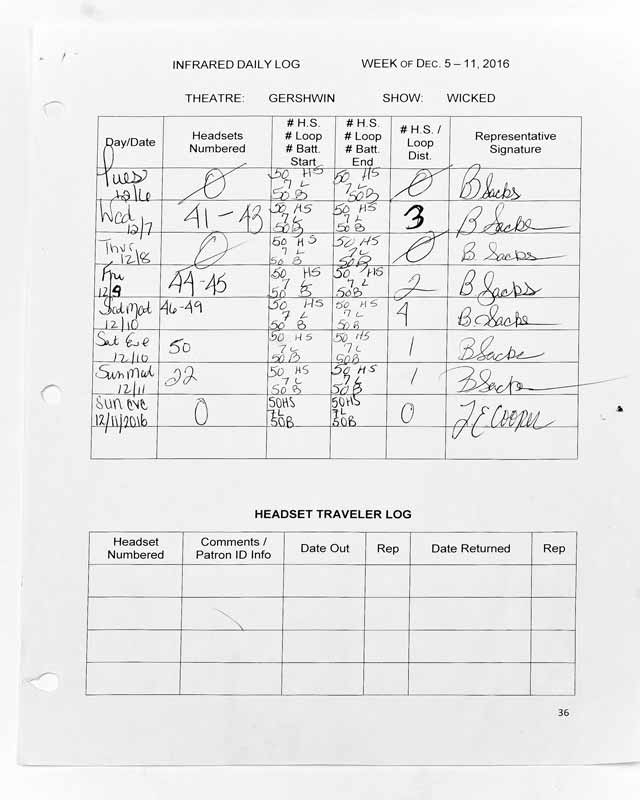 INFRARED DAILY LOG WEEK OF DEC. 5 – 11, 2016
THEATRE: GERSHWIN SHOW: WICKED
Day/Date
Headsets
Numbered
# H.S.
# Loop
# Batt.
Start
# H.S.
# Loop
# Batt.
End
# H.S. /
Loop
Dist.
Representative
Signature
Tues
12/6
0
50 HS
7 L
50 B
50 HS
7 L
50B
0
B Sacks
Wed
12/7
41 – 43
50 HS
7 L
50 B
50 HS
7 L
50 B
3
B Sacks
Thur
12/8
0
50 HS
7 L
50 B
50 HS
7 L
50 B
0
B Sacks
Fri
12/9
44-45
50 HS
7 L
50 B
50 HS
7 L
50B
2
B Sacks
Sat Mat
12/10
46-49
50 HS
7 L
50 B
50 HS
7 L
50B
4
B Sacks
Sat Eve
12/10
50
50 HS
7 L
50 B
50 HS
7 L
50B
1
B Sacks
Sun Mat
12/11
22
50 HS
7 L
50 B
50 HS
7 L
50 B
1
B Sacks
Sun eve
12/11/2016
0
50HS
7L
50B
50HS
7L
50B
0
J E Cooper
HEADSET TRAVELER LOG
Headset
Numbered
Comments /
Patron ID Info
Date Out
Rep
Date Returned
Rep
36